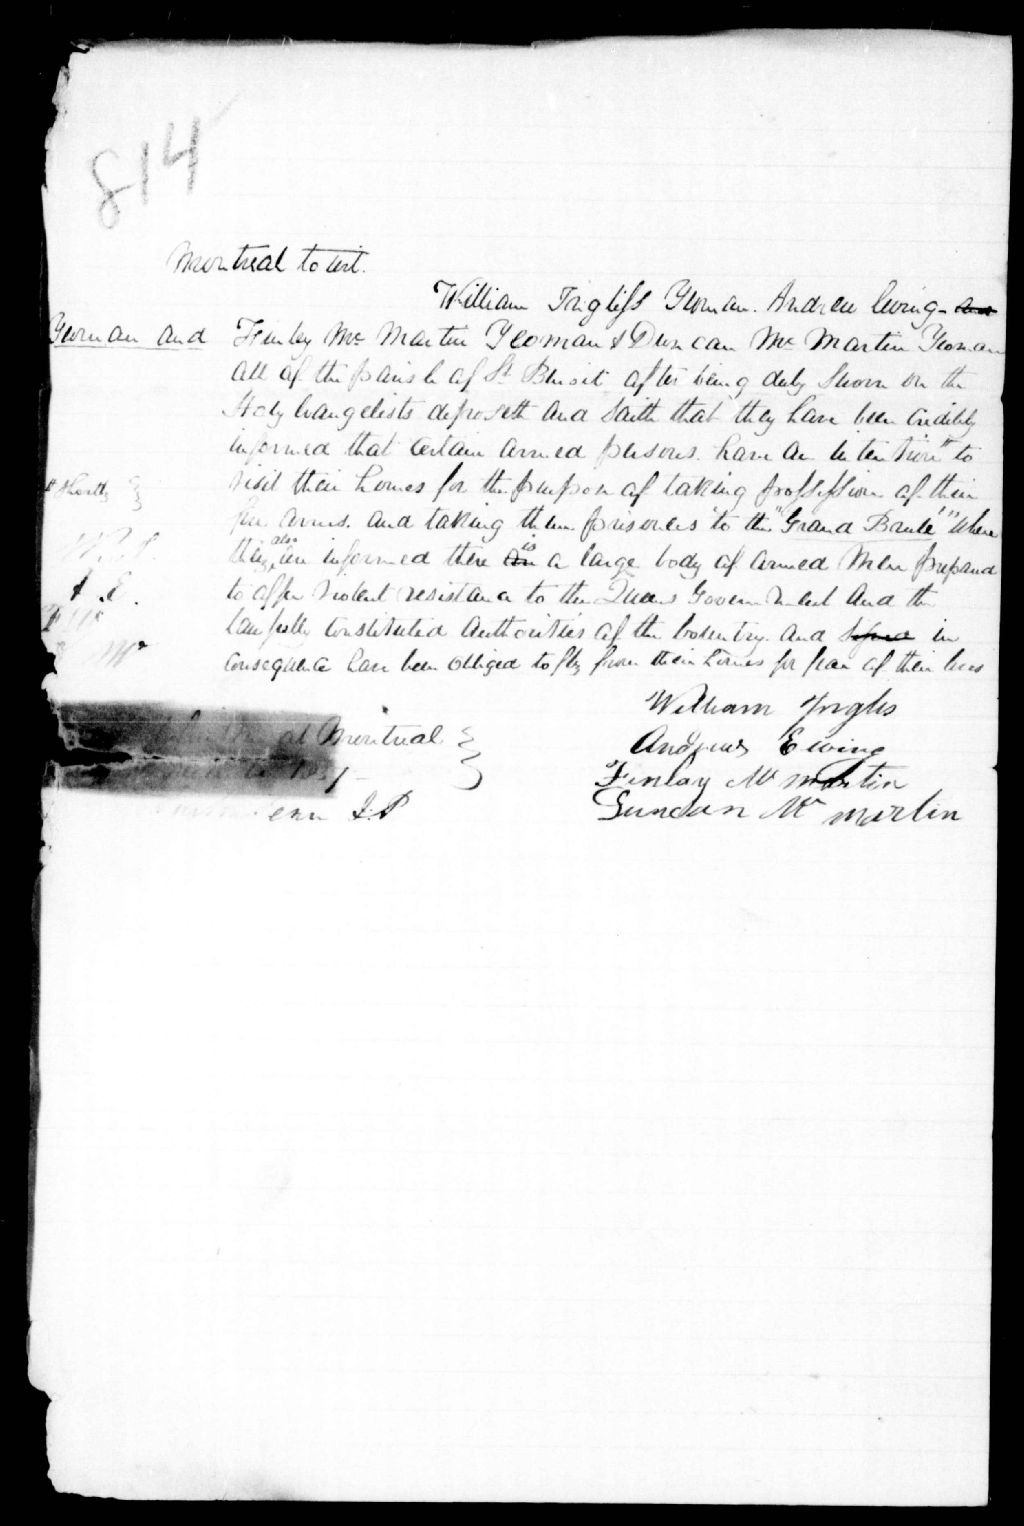 814
Montreal to wit.
William Ingliss Yeoman. Andrew Ewing - and
Yeoman and Finlay Mc Martin Yeoman & Duncan Mc Martin Yeoman
all of the parish of St Bنoit after being duly sworn on the
Holy Evangelists deposeth and saith that they have been credibly
informed that certain armed persons have an intention # to
# shortly visit their homes for the purpose of taking possession of their
fire arms. and taking them prisoners to the "Grand Brulé" where
they also are informed there is a large body of armed Men prepared
A. E. to offer violent resistance to the Queens Government and the
lawfully constituted authorities of the country. and in
Mc consequence have been obliged to fly from their homes for fear of their lives
William Inglis
at Montreal Andrew Ewing
Finlay Mc martin
J.P Duncan Mc martin